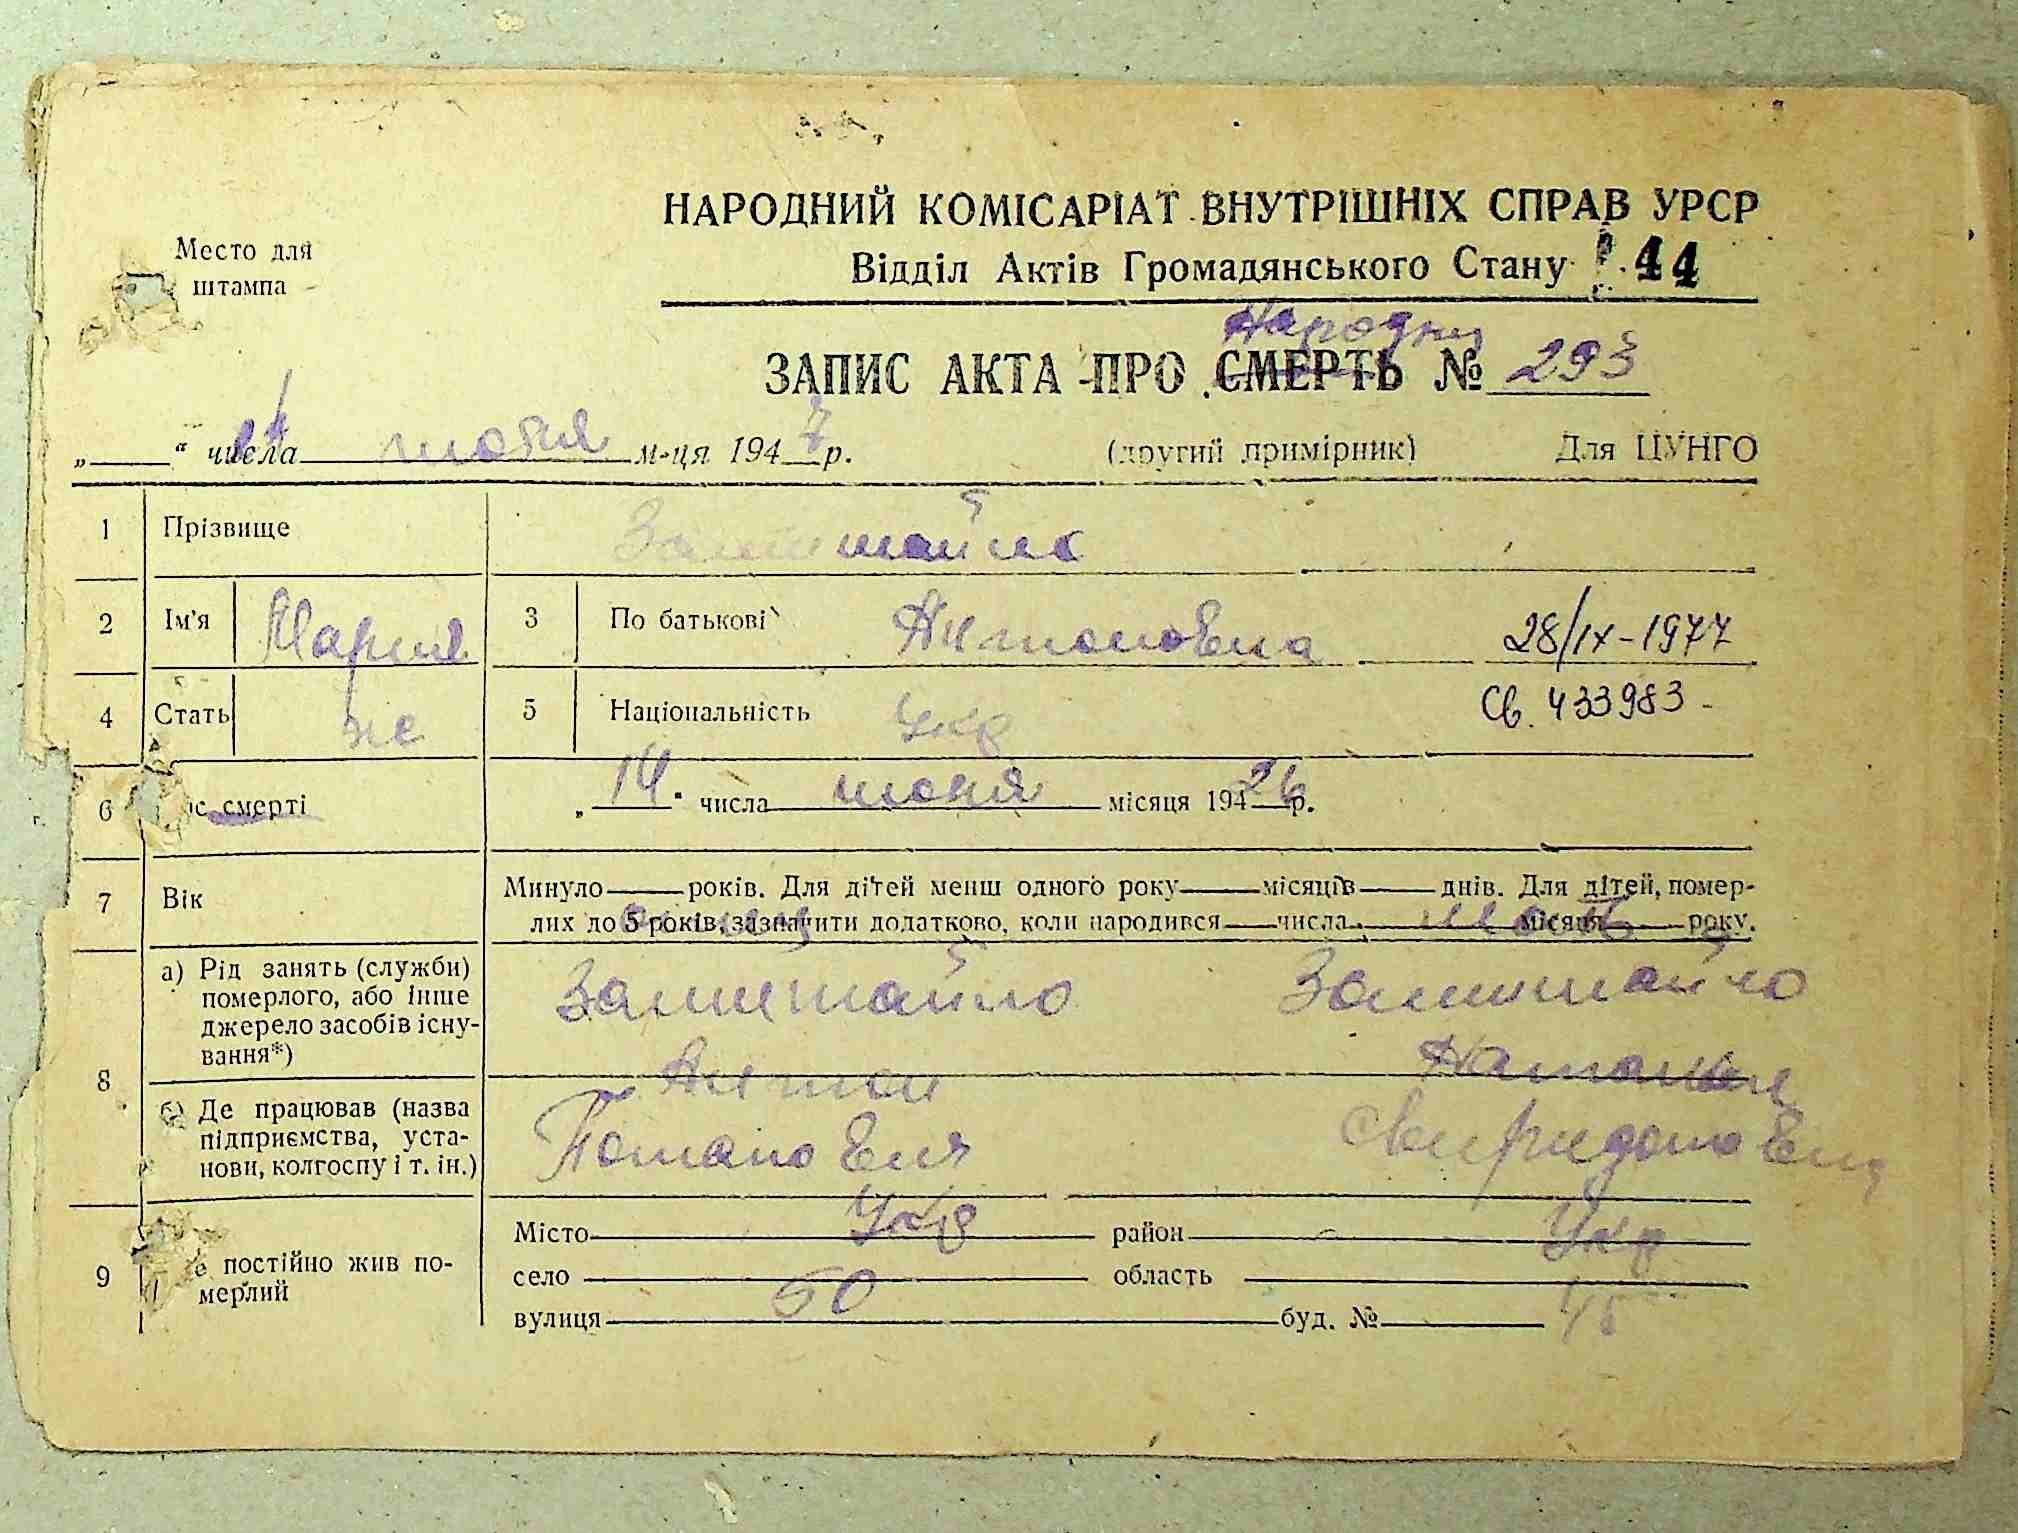 НАРОДНИЙ КОМІСАРІАТ ВНУТРІШНІХ СПРАВ УРСР
Место для штампа
Відділ Актів Громадянського Стану
44
ЗАПИС АКТА ПРО СМЕРТЬ № 293
„ “ числа м-ця 1947 р. (другий примірник) Для ЦУНГО
1 Прізвище
2 Ім'я Мария 3 По батькові Антоновна 28/IX-1977
4 Стать ж 5 Національність Укр Св. 433983
6 смерті „14“ числа июня місяця 194 26 р.
7 Вік Минуло років. Для дітей менш одного року місяців днів. Для дітей, помер-
лих до 5 років, зазначити додатково, коли народився числа місяця року.
8 а) Рід занять (служби) померлого, або інше джерело засобів існу-вання*)
Антон Наталья
б) Де працював (назва підприємства, уста-нови, колгоспу і т. ін.)
Потапович Свиридоновна
Укр Укр
9 постійно жив по-мерлий Місто район
село область
50 45
вулиця буд. №